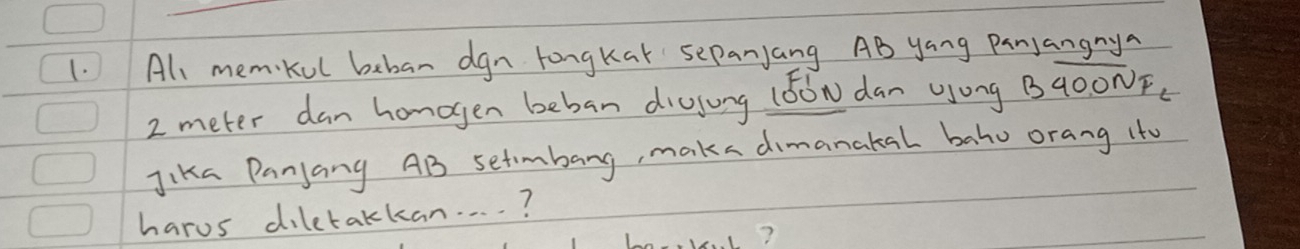 1. Ali memikul beban dgn tongkat sepanjang AB yang panjangnya
2 meter dan homogen beban diujung 100N F1 dan ujung B 400N F2
Jika Panjang AB setimbang, maka dimanakah bahu orang itu
harus diletakkan....?
?